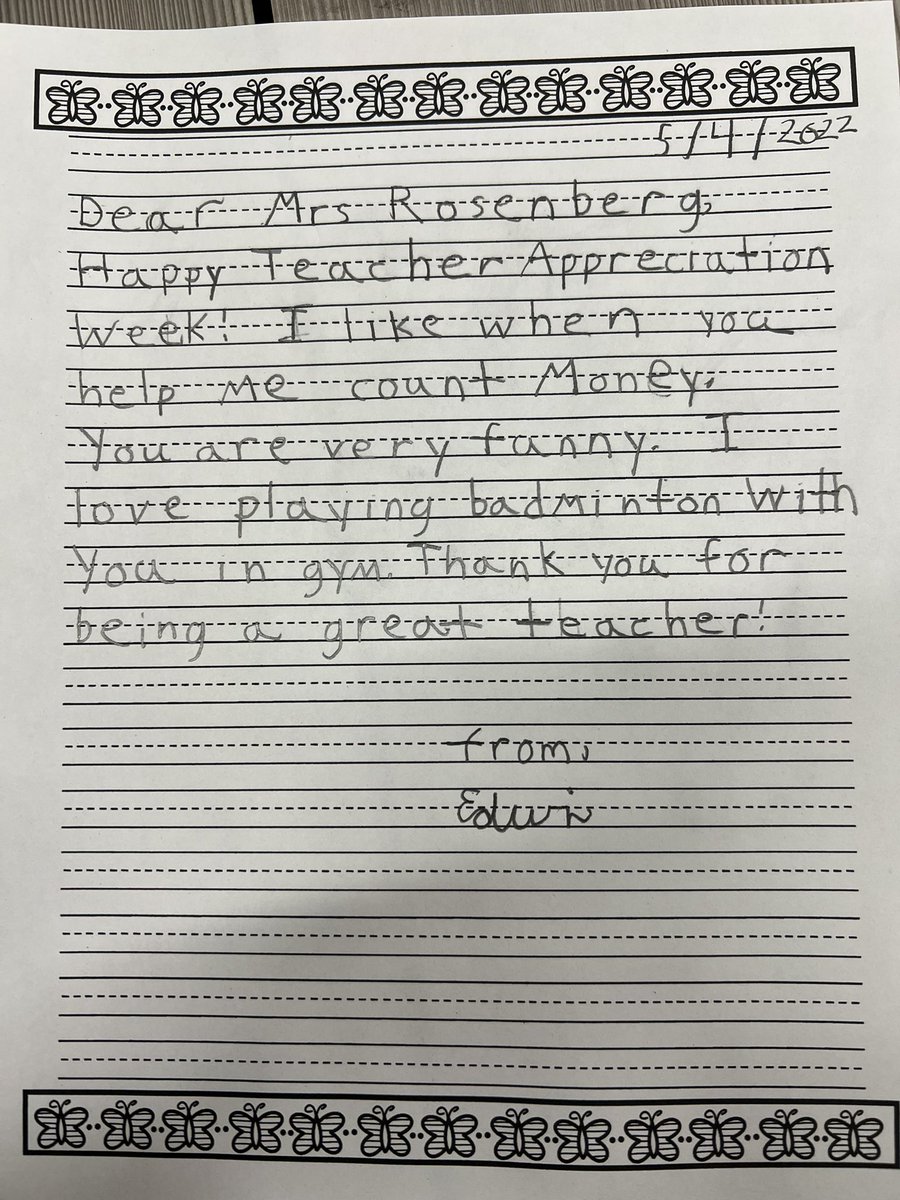 5/4/2022
Dear Mrs Rosenberg,
Happy Teacher Appreciation
Week! I like when you
help Me count Money.
You are very funny. I
love playing badminton with
You in gym. Thank you for
being a great teacher!
from,
Edwin